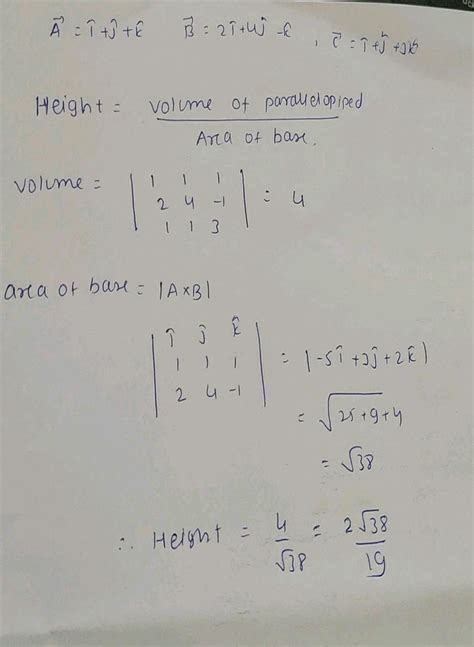 A⃗ = î+ĵ+k̂   B⃗ = 2î+4ĵ-k̂ , C⃗ = î+ĵ+3k̂
Height = volume of parallelopiped
Area of base.
volume = | 1 1 1 |
| 2 4 -1 | = 4
| 1 1 3 |
area of base = |A×B|
| î ĵ k̂ |
| 1 1 1 | = |-5î+3ĵ+2k̂|
| 2 4 -1 |
= √25+9+4
= √38
∴ Height = 4/√38 = 2√38/19